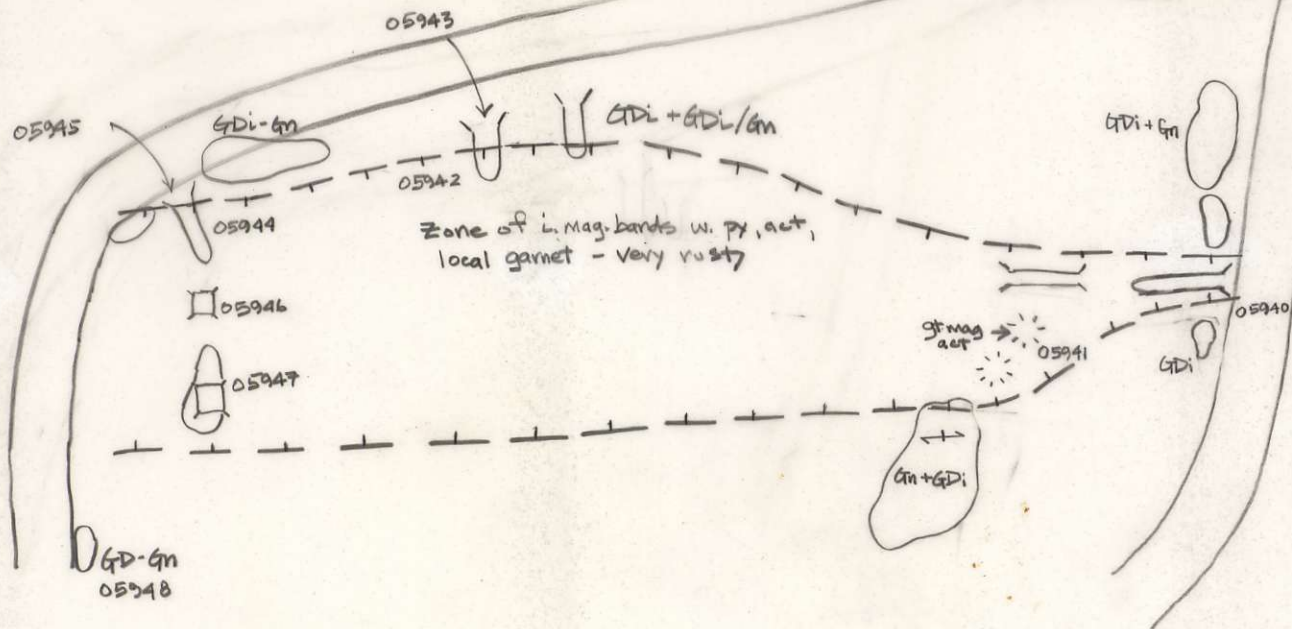 05943
05945
GDi-Gn
GDi + GDi/Gn
GDi+Gn
05942
05944
Zone of i. Mag. bands w. py, act,
local garnet - very rusty
05946
05940
gt mag
act
05941
GDi
05947
Gn+GDi
GD-Gn
05948